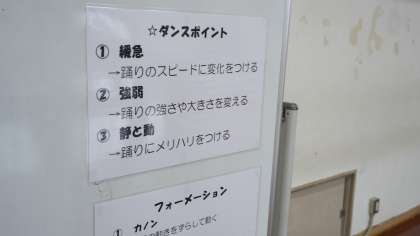 ☆ダンスポイント
① 緩急
→踊りのスピードに変化をつける
② 強弱
→踊りの強さや大きさを変える
③ 静と動
→踊りにメリハリをつける
フォーメーション
① カノン
の動きをずらして動く